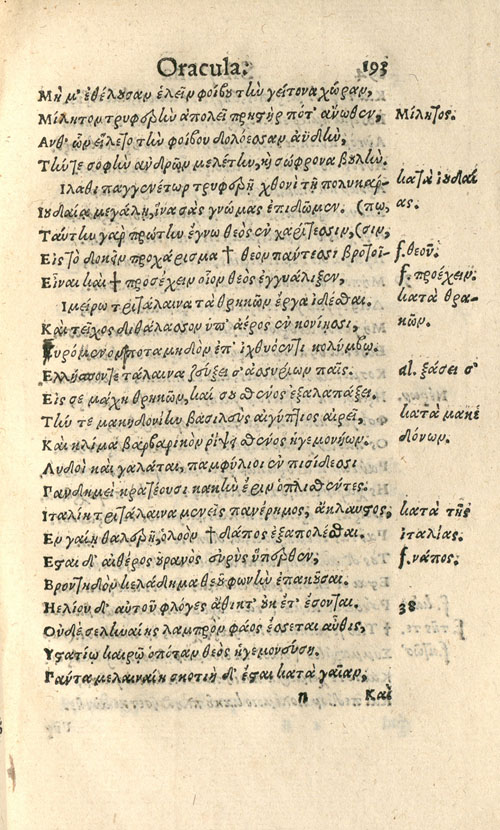 Oracula. 193
Μή μ' ἐθέλουσαν ἑλεῖν φοίβου τὴν γείτονα χώραν,
Μίλητον τρυφερὴν ἀπολεῖ πρηστήρ ποτ' ἄνωθεν, Μίλητος.
Ἀνθ' ὧν εἵλετο τὴν φοίβου δολόεσσαν ἀοιδὴν,
Τήν τε σοφὴν ἀνδρῶν μελέτην, ἢ σώφρονα βουλήν.
Ἵλαθι παγγενέτωρ τρυφερῇ χθονὶ τῇ πολυκάρ- κατὰ ἰουδαί
Ἰουδαίᾳ μεγάλῃ, ἵνα σὰς γνώμας ἐπιδῶμεν. (πῳ, ας.
Ταύτην γὰρ πρώτην ἔγνω θεὸς ἐν χαρίτεσσιν, (σιν,
Εἰς τὸ δοκῆν προχάρισμα † θεὸν πάντεσσι βροτοῖ- f. θεοῦ.
Εἶναι καὶ † προσέχειν οἷον θεὸς ἐγγυάλιξεν, f. προέχειν.
Ἱμείρω τριτάλαινα τὰ θρηκῶν ἔργα ἰδέσθαι. κατὰ θρα-
Καὶ τεῖχος διθάλασσον ὑπ' ἀέρος ἐν κονίῃσι, κῶν.
Συρόμενον ποταμηδὸν ἐπ' ἰχθυόεντι κολύμβῳ.
Ἑλλήσποντε τάλαινα ζεύξει σ' ἀσσυρίων παῖς. al. ξάσει σ'
Εἰς σε μάχη θρηκῶν, καί σου σθένος ἐξαλαπάξει.
Τήν τε μακηδονίην βασιλεὺς αἰγύπτιος αἱρεῖ, κατὰ μακε
Καὶ κλίμα βαρβαρικὸν ῥίψει σθένος ἡγεμονήων. δόνων.
Λυδοὶ καὶ γαλάται, παμφύλιοι ἐν πισίδεσσι
Πανδημεὶ κρατέουσι κακὴν ἔριν ὁπλισθέντες.
Ἰταλίη τριτάλαινα μενεῖς πανέρημος, ἄκλαυστος, κατὰ τῆς
Ἐν γαίῃ θαλερῇ, ὀλοὸν † δάπος ἐξαπολέσθαι. ἰταλίας.
Ἔσται δ' αἰθέρος οὐρανὸς εὐρὺς ὕπερθεν, f. νάπος.
Βροντηδὸν κελάδημα θεοῦ φωνὴν ἐπακοῦσαι.
Ἠελίου δ' αὐτοῦ φλόγες ἄφθιτ' οὐκ ἔτ' ἔσονται. 38
Οὐδὲ σεληναίης λαμπρὸν φάος ἔσσεται αὖθις,
Ὑστατίῳ καιρῷ ὁπόταν θεὸς ἡγεμονεύσῃ.
Πάντα μελαναίῃ σκοτίη δ' ἔσται κατὰ γαῖαν,
n Καὶ